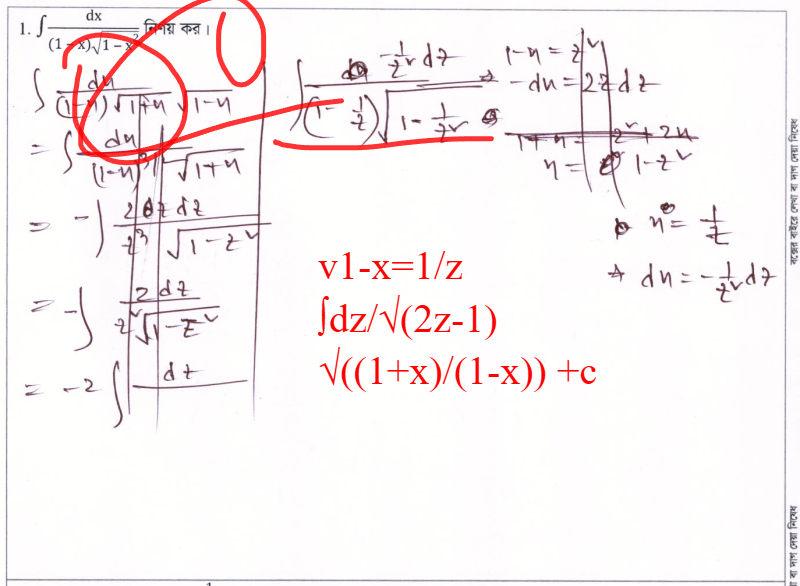 1. ∫ dx / (1-x)√1-x² নির্ণয় কর।
∫ dx / (1-x)√1+x √1-x
= ∫ dx / (1-x)^3 √1+x
= -∫ 2z dz / z³ √1-z²
= -∫ 2dz / z²√1-z²
= -2 ∫ dz
∫ -1/z² dz / (1-1/z)√1-1/z²
1-x = z²
-dx = 2z dz
x = 1-z²
x = 1/z
dx = -1/z² dz
v1-x=1/z
∫dz/√(2z-1)
√((1+x)/(1-x)) +c
বক্সের বাইরে লেখা বা দাগ দেয়া নিষেধ
বা দাগ দেয়া নিষেধ